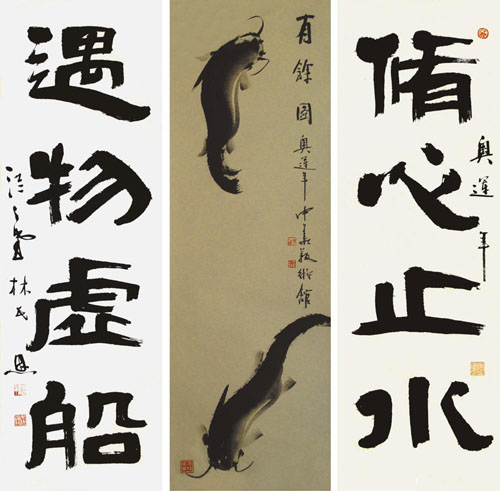 脩心止水
奥運年
有餘图
奥運年中華藝術館
遇物虚船
林民恩